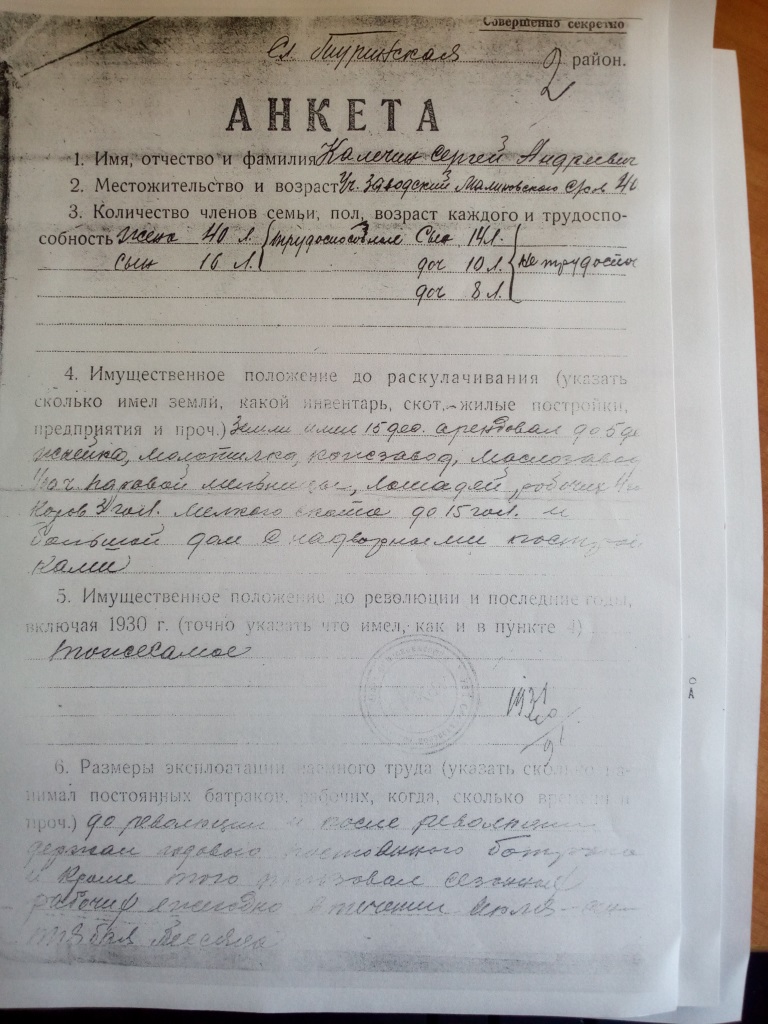 Совершенно секретно
Сл. Туринская район.
2
АНКЕТА
1. Имя, отчество и фамилия Калечин Сергей Андреевич
2. Местожительство и возраст Уч. Заводский Малиновского 40
3. Количество членов семьи, пол, возраст каждого и трудоспо-
собность жена 40 л. трудоспособные Сын 14 л.
сын 16 л. доч 10 л. не трудоспос
доч 8 л.
4. Имущественное положение до раскулачивания (указать
сколько имел земли, какой инвентарь, скот, жилые постройки,
предприятия и проч.) Земли имел 15 дес. арендовал до 5 де
жнейка, молотилка, маслозавод
паровой мельницы, лошадей, рабочих
коров 3 гол. мелкого скота до 15 гол. и
большой дом с надворными построй
ками
5. Имущественное положение до революции и последние годы,
включая 1930 г. (точно указать что имел, как и в пункте 4)
тожесамое
1931
6. Размеры эксплоатации наемного труда (указать сколько на-
нимал постоянных батраков, рабочих, когда, сколько времени и
проч.) до революции и после революции
держал годового постоянного батрака
и кроме того сезонных
рабочих ежегодно в течении